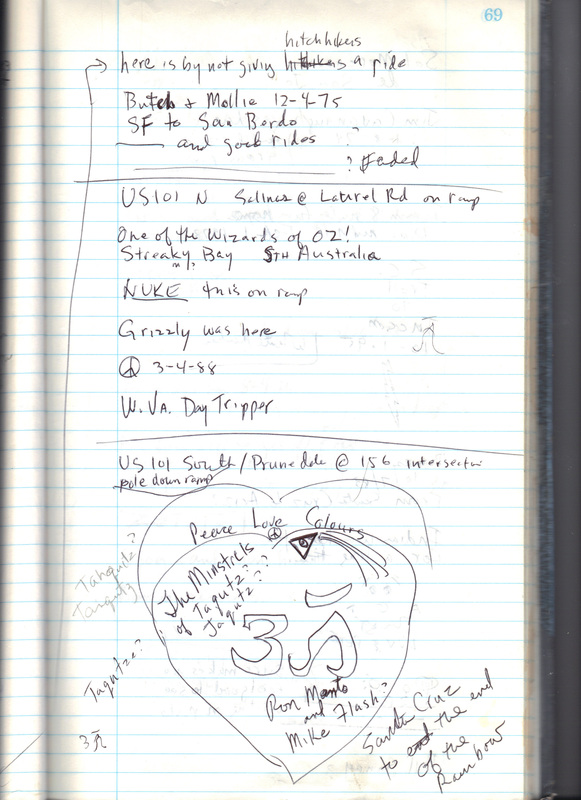 69
hitchhikers
here is by not giving a ride
Butch & Mollie 12-4-75
SF to San Berdo
and good rides ?
? Faded
US101 N Salinas @ Laurel Rd on ramp
One of the Wizards of OZ!
Streaky Bay STH Australia
NUKE this on ramp
Grizzly was here
3-4-88
W. VA. Day Tripper
US 101 South/Prunedale @ 156 intersection
pole down ramp
Peace Love Colours
The Minstrels ?
of Taqutz ?
Jaqutz ?
Tahquitz ?
Tanquitz
Taqutze ?
ॐ
Ron Manto
and
Mike Flash?
Santa Cruz
to the end
of the
Rainbow
3